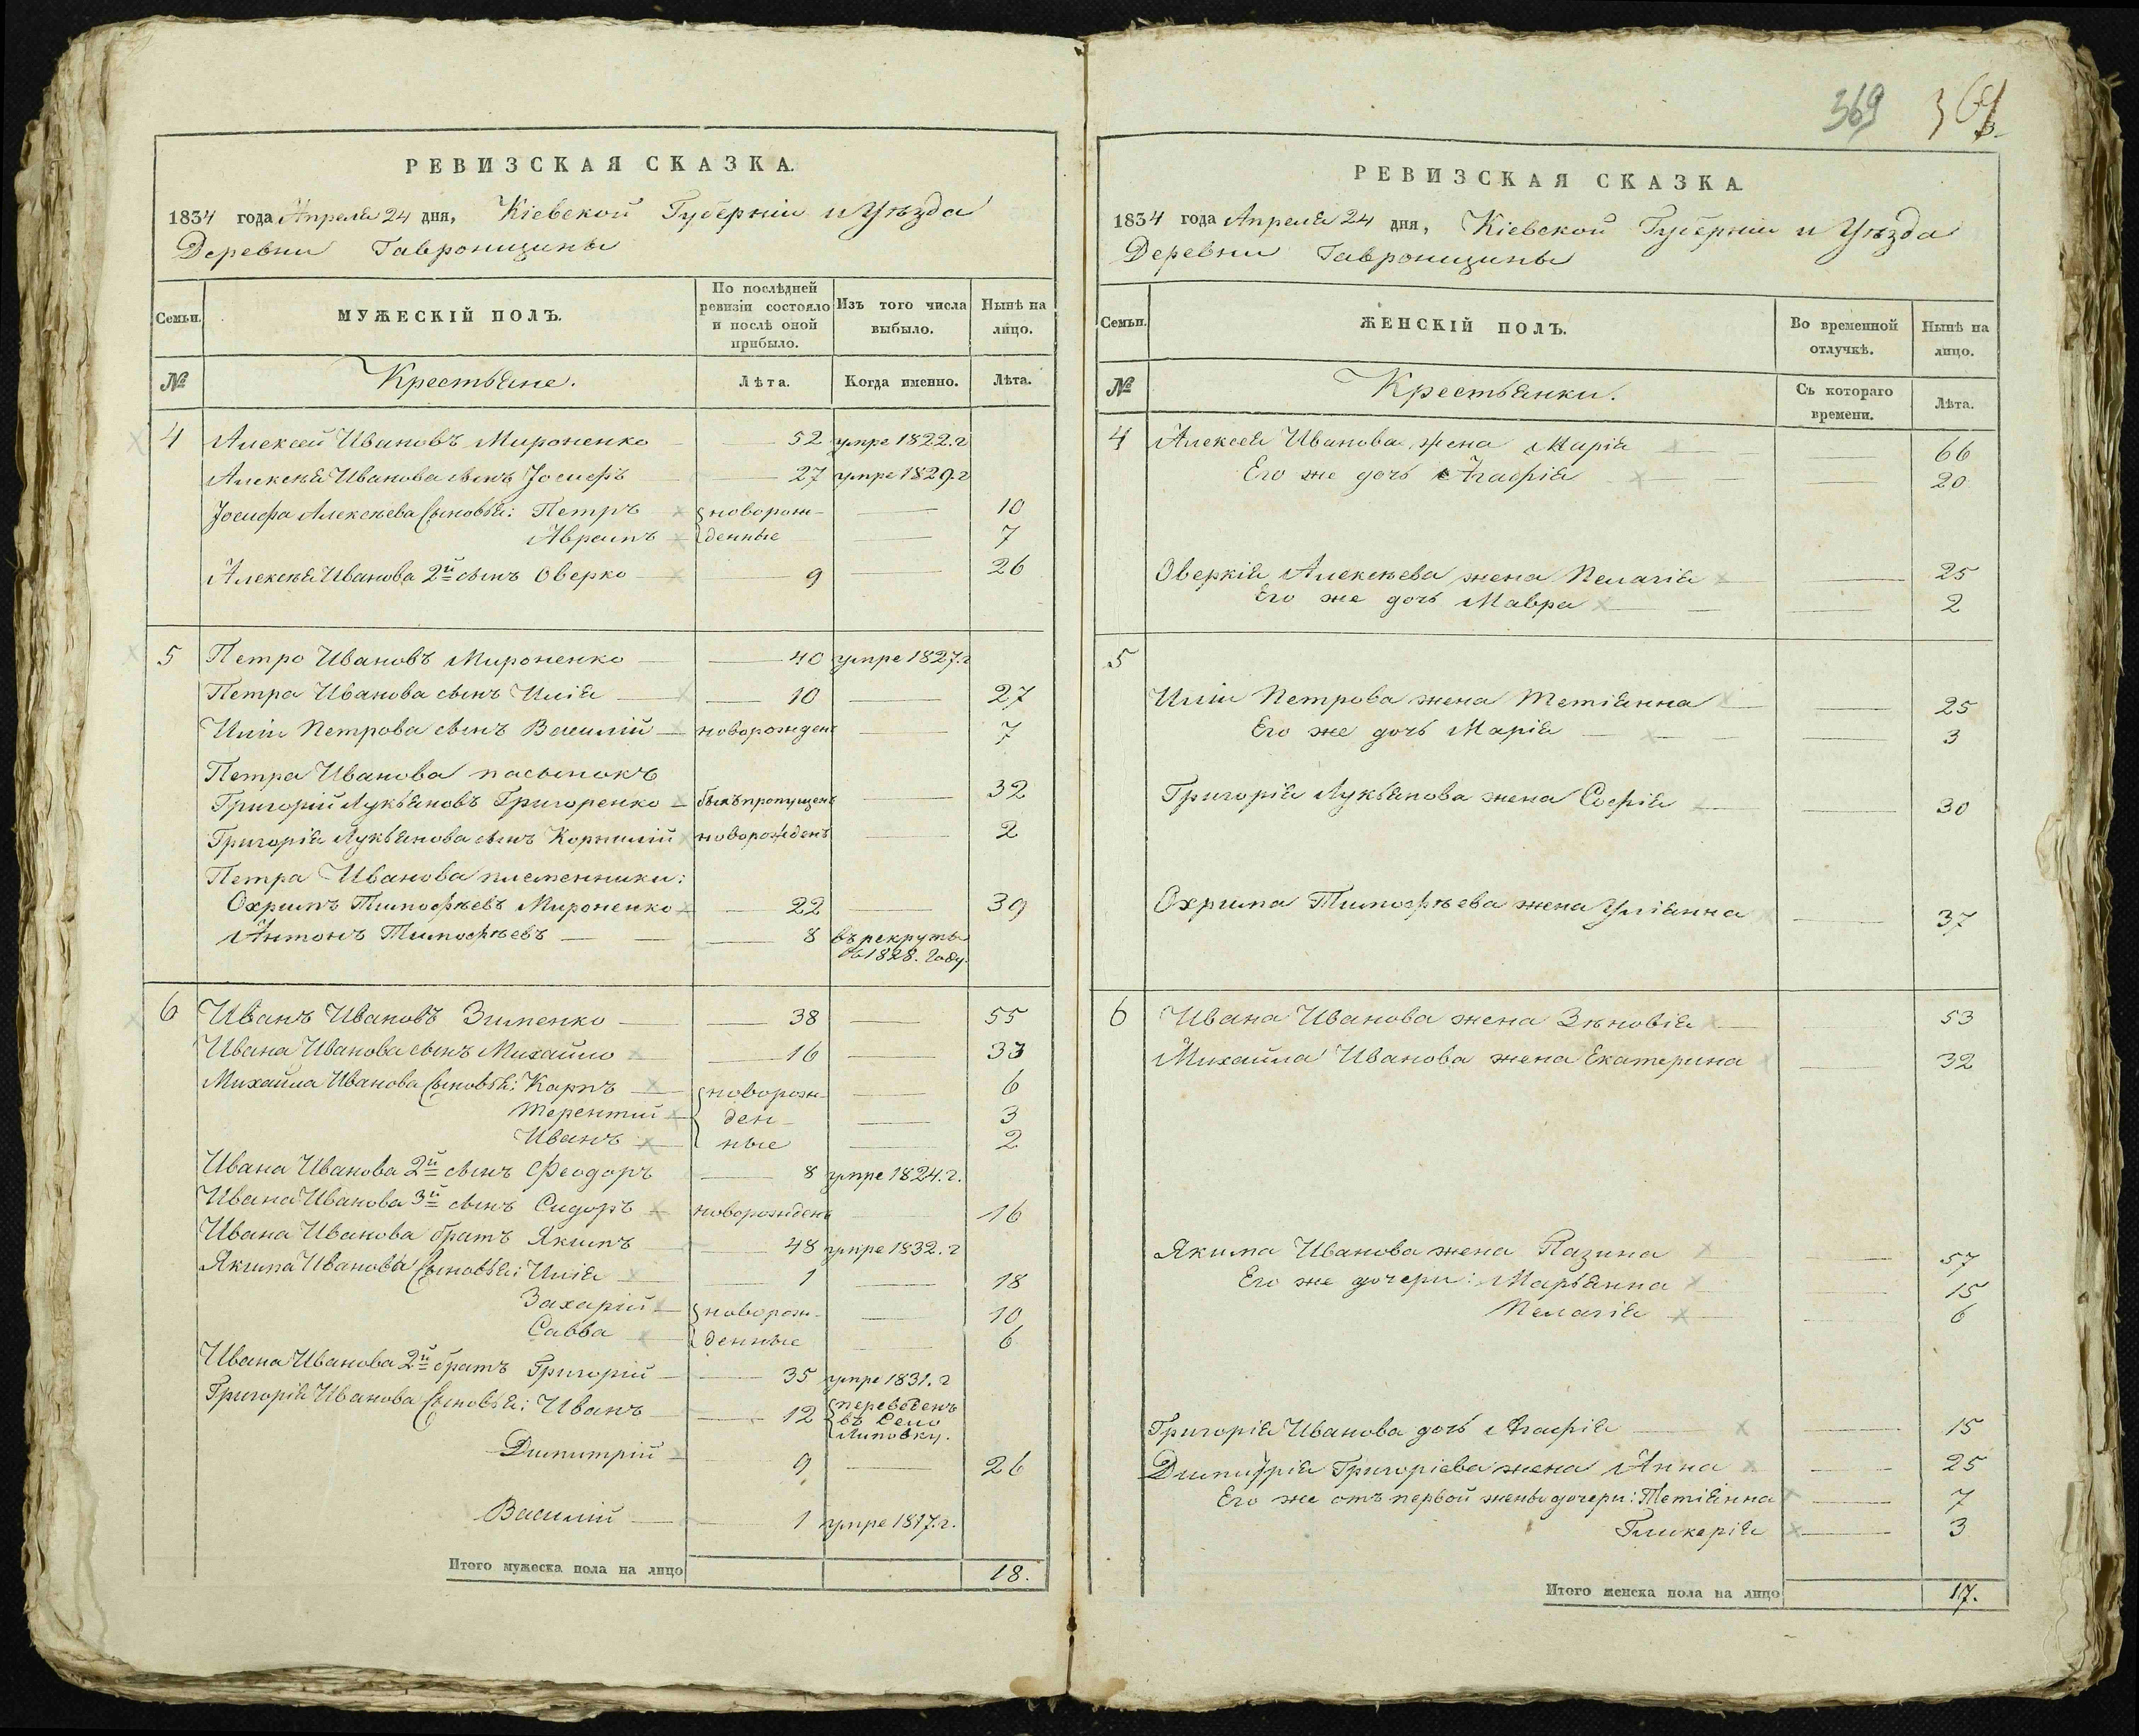 РЕВИЗСКАЯ СКАЗКА.
1834 года Апреля 24 дня, Кіевской Губерніи и Уѣзда
Деревни Гавронщины
Семьи.
МУЖЕСКІЙ ПОЛЪ.
По послѣдней
ревизіи состояло
и послѣ оной
прибыло.
Изъ того числа
выбыло.
Нынѣ на
лицо.
№
Крестьяне.
Лѣта.
Когда именно.
Лѣта.
4 Алексей Ивановъ Мироненко 52 умре 1822. г
Алексѣя Иванова сынъ Іосифъ 27 умре 1829. г
Іосифа Алексѣева сыновья: Петръ новорож- 10
Аврамъ денные 7
Алексѣя Иванова 2й сынъ Оверко 9 26
5 Петро Ивановъ Мироненко 40 умре 1827. г
Петра Иванова сынъ Илія 10 27
Иліи Петрова сынъ Василій новорожденъ 7
Петра Иванова пасынокъ
Григорій Лукьяновъ Григоренко былъ пропущенъ 32
Григорія Лукьянова сынъ Корнилій новорожденъ 2
Петра Иванова племенники:
Охримъ Тимофѣевъ Мироненко 22 39
Антонъ Тимофѣевъ 8 въ рекруты
въ 1828. году.
6 Иванъ Ивановъ Зименко 38 55
Ивана Иванова сынъ Михайло 16 33
Михайла Иванова сыновья: Карпъ новорож- 6
Терентій ден- 3
Иванъ ные 2
Ивана Иванова 2й сынъ Феодоръ 8 умре 1824. г.
Ивана Иванова 3й сынъ Сидоръ новорожденъ 16
Ивана Иванова братъ Якимъ 48 умре 1832. г
Якима Иванова сыновья: Илія 1 18
Захарій новорож- 10
Савва денные 6
Ивана Иванова 2й братъ Григорій 35 умре 1831. г
Григорія Иванова сыновья: Иванъ 12 переведенъ
въ Село
Липовку.
Димитрій 9 26
Василій 1 умре 1817. г.
Итого мужеска пола на лицо 18.
369
РЕВИЗСКАЯ СКАЗКА.
1834 года Апреля 24 дня, Кіевской Губерніи и Уѣзда
Деревни Гавронщины
Семьи.
ЖЕНСКІЙ ПОЛЪ.
Во временной
отлучкѣ.
Нынѣ на
лицо.
№
Крестьянки.
Съ котораго
времени.
Лѣта.
4 Алексея Иванова жена Марія 66
Его же дочь Агафія 20
Оверкія Алексѣева жена Пелагія 25
Его же дочь Мавра 2
5
Иліи Петрова жена Тетіянна 25
Его же дочь Марія 3
Григорія Лукьянова жена Софія 30
Охрима Тимофѣева жена Уліянна 37
6 Ивана Иванова жена Зѣновія 53
Михайла Иванова жена Екатерина 32
Якима Иванова жена Пазина 57
Его же дочери: Марьянна 15
Пелагія 6
Григорія Иванова дочь Агафія 15
Димитрія Григоріева жена Анна 25
Его же отъ первой жены дочери: Тетіянна 7
Гликерія 3
Итого женска пола на лицо 17.